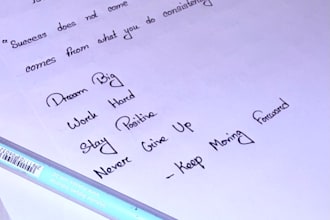 "Success does not come
comes from what you do consistently
Dream Big
Work Hard
Stay Positive
Never Give Up
- Keep Moving Forward